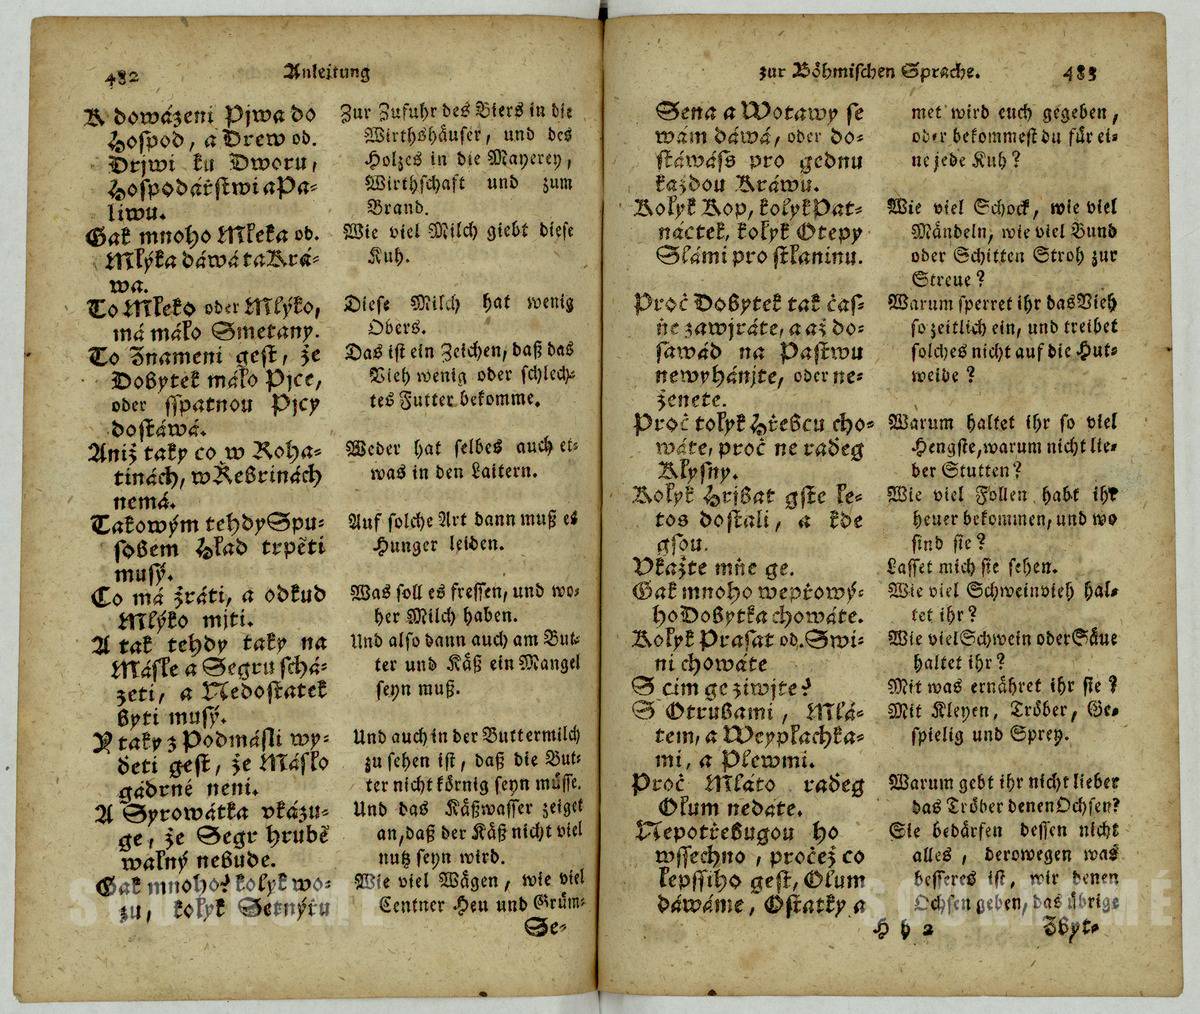 482
Anleitung
K dowázeni Pjwa do
Hospod, a Drew od.
Drjwi ku Dworu,
Hospodářstwi a Pa-
liwu.
Gak mnoho Mleka od.
Mlýka dáwá ta Krá-
wa.
To Mleko oder Mlýko,
má málo Smetany.
To Znameni gest, že
Dobytek málo Pjce,
oder sspatnou Pjcy
dostáwá.
Aniž taky co w Roha-
tinách, w Řebrinách
nemá.
Takowým tehdy Spu-
sobem Hlad trpěti
musý.
Co má žráti, a odkud
Mlýko mjti.
A tak tehdy taky na
Másle a Segru schá-
zeti, a Nedostatek
byti musý.
Y taky z Podmásli wy-
deti gest, že Máslo
gádrné neni.
A Syrowátka vkázu-
ge, že Segr hrubě
walný nebude.
Gak mnoho? kolyk wo-
zu, kolyk Setnýru
Zur Zufuhr des Biers in die
Wirthshäuser, und des
Holzes in die Mayerey,
Wirthschaft und zum
Brand.
Wie viel Milch giebt diese
Kuh.
Diese Milch hat wenig
Obers.
Das ist ein Zeichen, daß das
Vieh wenig oder schlech-
tes Futter bekomme.
Weder hat selbes auch et-
was in den Laitern.
Auf solche Art dann muß es
Hunger leiden.
Was soll es fressen, und wo-
her Milch haben.
Und also dann auch am But-
ter und Käß ein Mangel
seyn muß.
Und auch in der Buttermilch
zu sehen ist, daß die But-
ter nicht körnig seyn müsse.
Und das Käßwasser zeiget
an, daß der Käß nicht viel
nutz seyn wird.
Wie viel Wägen, wie viel
Centner Heu und Grum-
Se-
zur Böhmischen Sprache.
483
Sena a Wotawy se
wam dáwá, oder do-
stáwáss pro gednu
každou Kráwu.
Kolyk Kop, kolyk Pat-
náctek, kolyk Otepy
Slámi pro stlaninu.
Proč Dobytek tak čas-
ňe zawjráte, a až do-
sawád na Pastwu
newyhánjte, oder ne-
ženete.
Proč tolyk Hřebcu cho-
wáte, proč ne radeg
Klysny.
Kolyk Hrjbat gste le-
tos dostali, a kde
gsou.
Vkažte mňe ge.
Gak mnoho wepřowý-
ho Dobytka chowáte.
Kolyk Prasat od. Swi-
ni chowáte
S cim ge ziwjte?
S Otrubami, Mlá-
tem, a Weyplachka-
mi, a Plewmi.
Proč Mláto radeg
Olum nedate.
Nepotřebugou ho
wssechno, pročež co
lepssiho gest, Olum
dáwáme, Ostatky a
met wird euch gegeben,
oder bekommest du für ei-
ne jede Kuh?
Wie viel Schock, wie viel
Mändeln, wie viel Bund
oder Schitten Stroh zur
Streue?
Warum sperret ihr das Vieh
so zeitlich ein, und treibet
solches nicht auf die Hut-
weide?
Warum haltet ihr so viel
Hengste, warum nicht lie-
ber Stutten?
Wie viel Follen habt ihr
heuer bekommen, und wo
sind sie?
Lasset mich sie sehen.
Wie viel Schweinvieh hal-
tet ihr?
Wie viel Schwein oder Säue
haltet ihr?
Mit was ernähret ihr sie?
Mit Kleyen, Tröber, Ge-
spielig und Sprey.
Warum gebt ihr nicht lieber
das Tröber denen Ochsen?
Sie bedärfen dessen nicht
alles, derowegen was
besseres ist, wir denen
Ochsen geben, das übrige
H h 2
Zbyt-